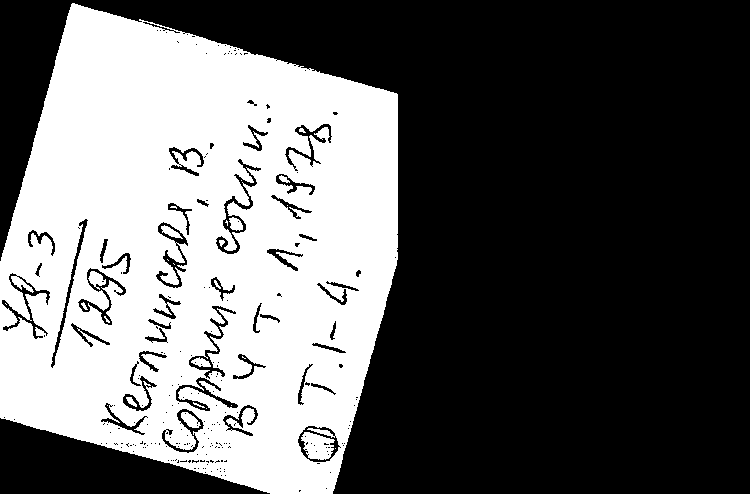 78-3
1295
Кетлинская, В.
Собрание сочин.:
В 4 т. Л., 1978.
Т. 1-4.